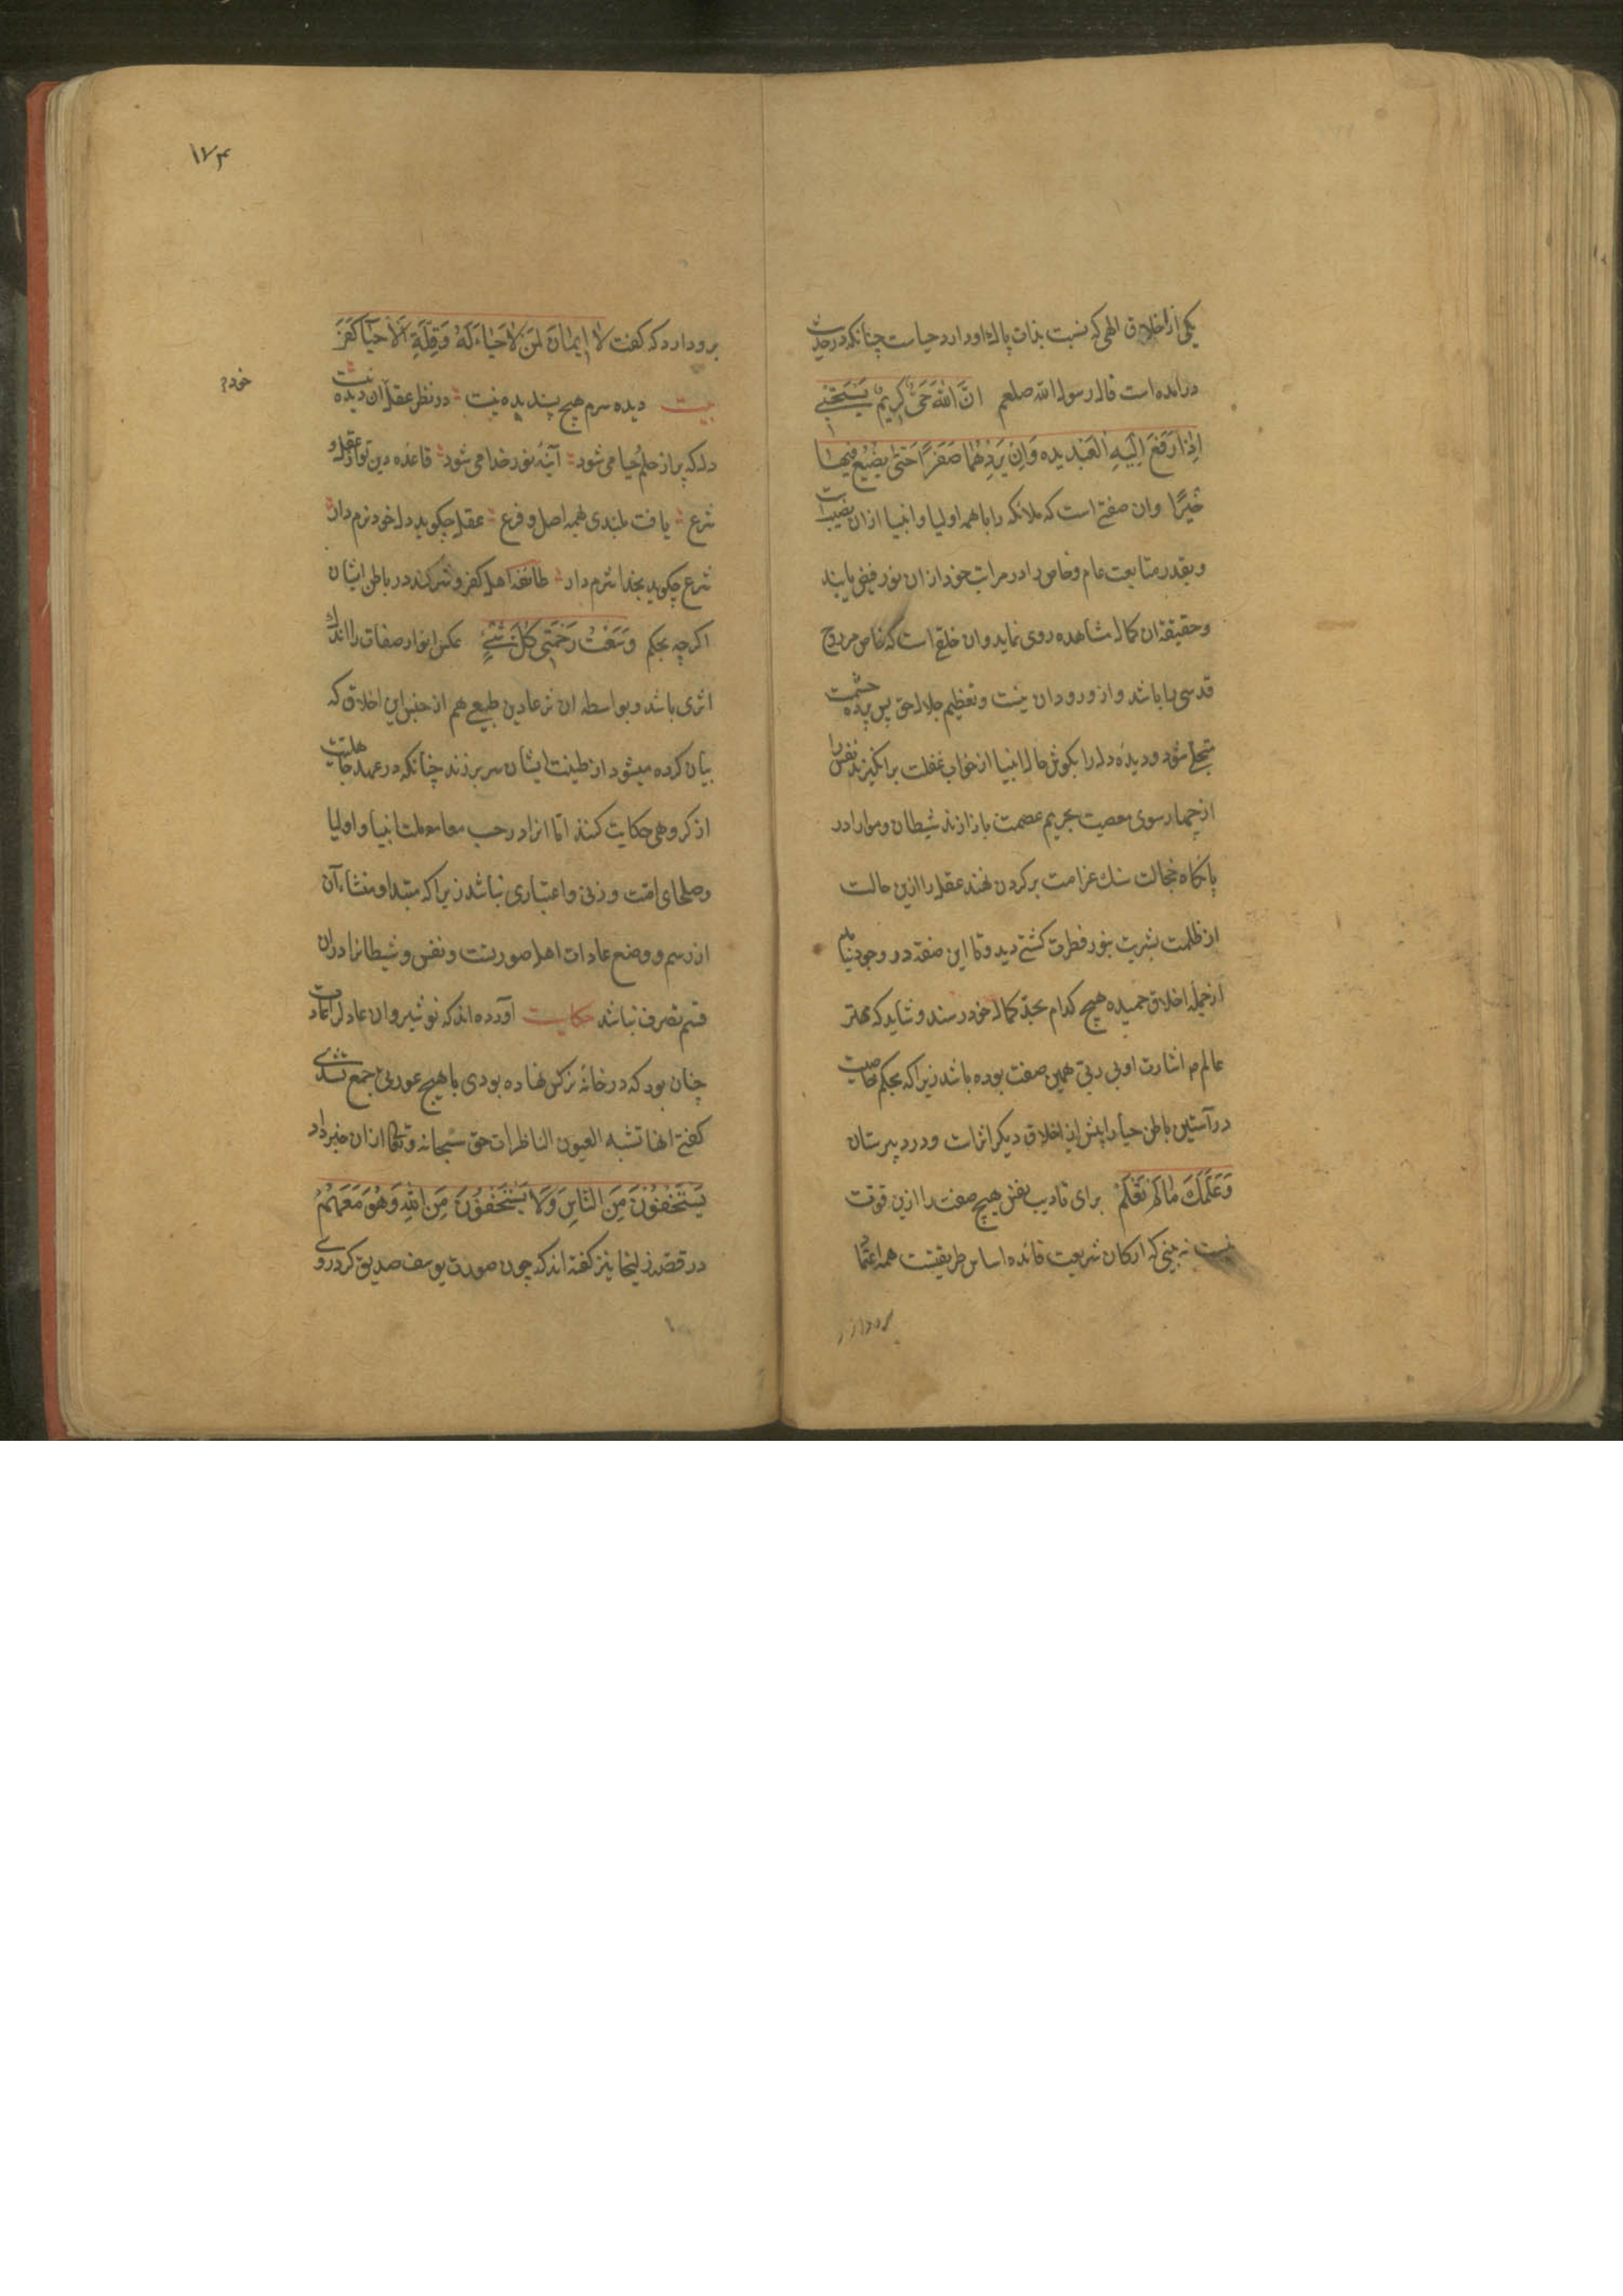 یکی از اخلاق الهی که نسبت بذات پاك او دارد حیاست چنانکه در حدیث
در آمده است قال رسول الله صلعم اِنَّ اللهَ حَیٌّ کریمٌ یَسْتَحْیی
اِذا رَفَعَ اِلَیهِ العَبْدُ یدیه وَاِنْ یَرُدَّهُما صَفَرًا حَتّی یضیع فیها
خَیْرًا وان صفتی است که ملائکه را با همه اولیا و انبیا ازان نصیب است
وبقدر متابعت عام وخاص را در مراتب خود ازان نور فیض یابند
وحقیقة ان کمال مشاهده روی نماید وان خلقی است که خاص مر روح
قدسی را باشد واز ورود ان هیبت وتعظیم جلال حق پس پرده حشمت
متجلی شود ودیده دل را بکوش حال انبیا از خواب غفلت برانکیزند نفس را
از چهار سوی معصیت بحریم عصمت باز ارند شیطان وهوا را در
پایکاه خجالت سنك غرامت بر کردن نهند عقل را ازین حالت
از ظلمت بشریت بنور فطرت کشتی دید وتا این صفة در وجود نیاید
از جمله اخلاق حمیده هیچ کدام بحد کمال خود نرسند وشاید که مهتر
عالم را اشارت ادبی ربی همین صفت بوده باشد زیرا که بحکم خاصیت
در آستین باطن حیا را پیش از اخلاق دیکر اثرات ودر دبیرستان
وَعَلَّمَكَ مٰا لَمْ تَعْلَمْ برای تادیب نفس هیچ صفت را ازین قوت
نیست نه بینی که ارکان شریعت قائده اساس طریقیتست همه اعتماد
بر و دارد که کفت لا ایمٰانَ لمَنْ لاٰ حَیاءَ لَهُ وَقِلَّةِ اَلْاحَیٰآ کَفَرَ
بیت دیده بیشرم هیچ پسندیده نیست در نظر عقل آن دیده نیست
دل که پر از حلم حیا می شود آینه نور خدا می شود قاعده دین تو از عقل و
شرع یافت بلندی همه اصل و فرع عقل چکوید دل خود نرم دار
شرع چکوید بخدا شرم دار طائفه اهل کفر و شرکند در باطن ایشان
اکرچه بحکم وَسَعَتْ رَحْمَتی کُلّ شَیْءٍ عکس انوار صفات را اندك
اثری باشد وبواسطه ان نیز عادین طبیعی هم از جنس این اخلاق که
بیان کرده میشود از طینت ایشان سر برزند چنانکه در عهد جاهلیت
از کروهی حکایت کنند اما انرا در حسب معاملت انبیا و اولیا
وصلحای امت وزنی واعتباری نباشد زیرا که مبتدا ومنشاء آن
از رسم و وضع عادات اهل صورتست ونفس و شیطانرا دران
قسم تصرف نباشد حکایت آورده اند که نوشیروان عادل را عادت
چنان بود که در خانهٔ نرکس نهاده بودی با هیچ عورتی جمع نشدی
کفتی انها تشبه العیون الناظرات حق سبحانه وتعالی ازان خبر داد
یَسْتَخْفُوْنَ مِنَ النّاسِ وَلَا یَسْتَخْفُوْنَ مِنَ اللهِ وَهُوَ مَعَهُمْ
در قصه زلیخا نیز کفته اند که چون صورت یوسف صدیق کرد روی
۱۷۴
خود؟